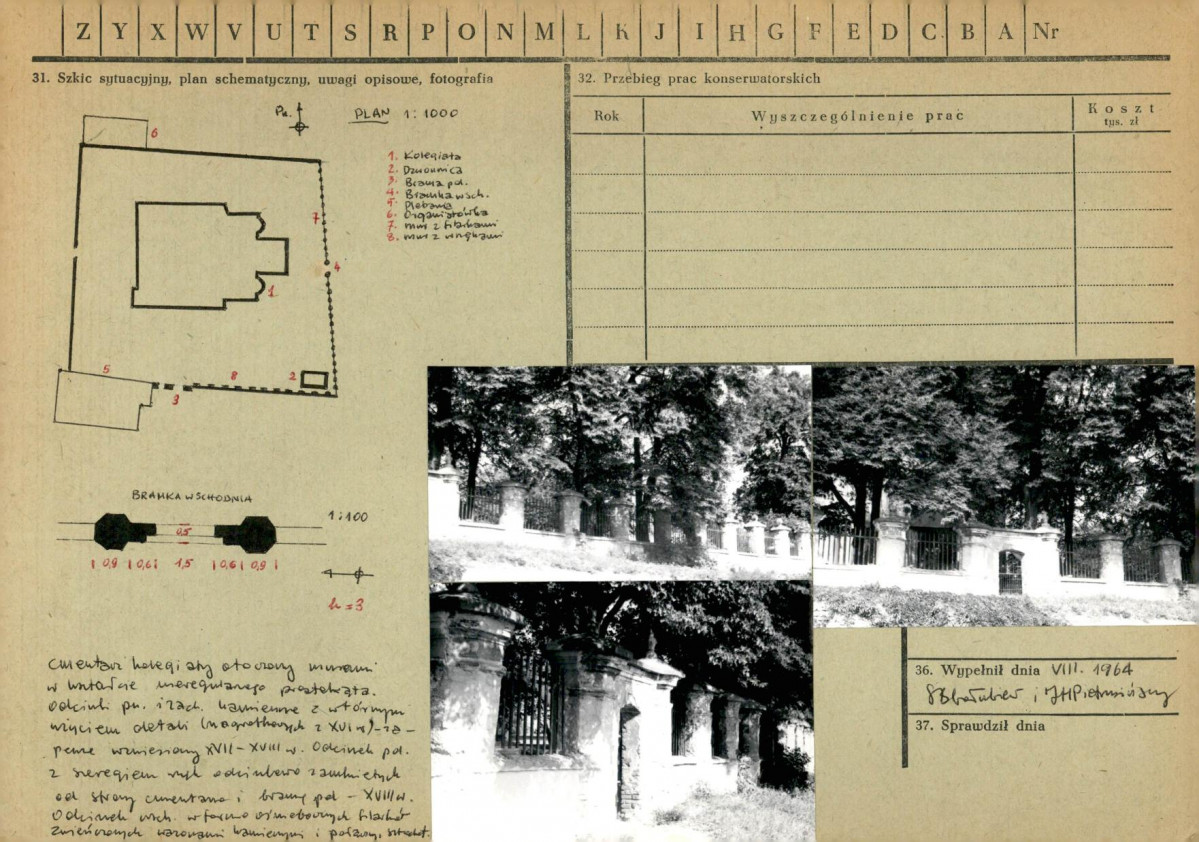 Z Y X W V U T S R P O N M L K J I H G F E D C B A Nr
31. Szkic sytuacyjny, plan schematyczny, uwagi opisowe, fotografia
Pn.
PLAN 1:1000
6
1. Kolegiata
2. Dzwonnica
3. Brama pd.
4. Bramka wsch.
5. Plebania
6. Organistówka
7. mur z filarkami
8. mur z wnękami
7
4
1
5
8
2
3
BRAMKA WSCHODNIA
1:100
0,5
0,9 0,6 1,5 0,6 0,9
h = 3
cmentarz kolegiaty otoczony murami
w kształcie nieregularnego prostokąta.
Odcinki pn. i zach. kamienne z wtórnym
użyciem detali (nagrobkowych z XVI w) - za-
pewne wzniesiony XVII - XVIII w. Odcinek pd.
z szeregiem wnęk odcinkowo zamkniętych
od strony cmentarza i bramą pd - XVIII w.
Odcinek wsch. w formie ośmiobocznych filarków
zwieńczonych wazonami kamiennymi i
32. Przebieg prac konserwatorskich
Rok
Wyszczególnienie prac
Koszt
tys. zł
36. Wypełnił dnia VIII. 1964
37. Sprawdził dnia